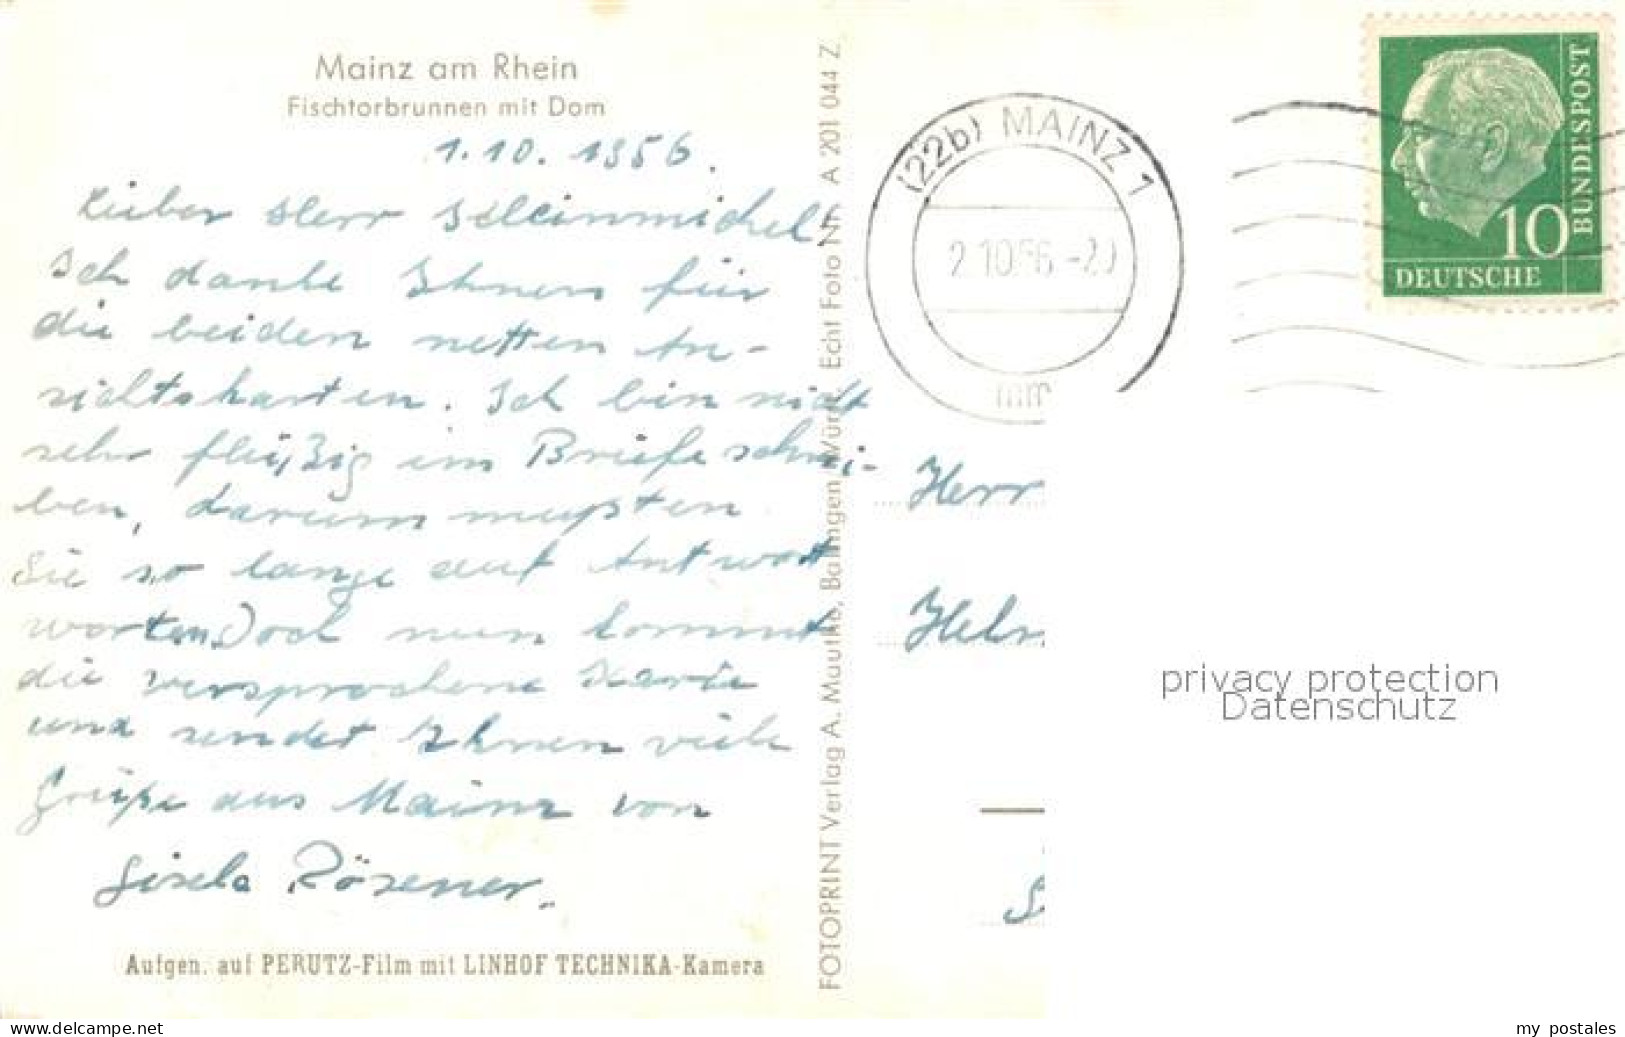 Mainz am Rhein
Fischtorbrunnen mit Dom
1.10.1956.
Lieber Herr Kleinmichel
Ich danke Ihnen für
die beiden netten An-
sichtskarten. Ich bin nicht
sehr fleißig im Briefe schrei-
ben, darum mußten
Sie so lange auf Antwort
warten. Doch nun kommt
die versprochene Karte
und sendet Ihnen viele
Grüße aus Mainz von
Gisela Rösener.
Aufgen. auf PERUTZ-Film mit LINHOF TECHNIKA-Kamera
FOTOPRINT Verlag A. Mauthe, Balingen/Württ. Echt Foto Nr. A 201 044 Z
(22b) MAINZ 1
2.10.56.-20
mm
10
DEUTSCHE
BUNDESPOST
Herr
privacy protection
Datenschutz
www.delcampe.net
my postales